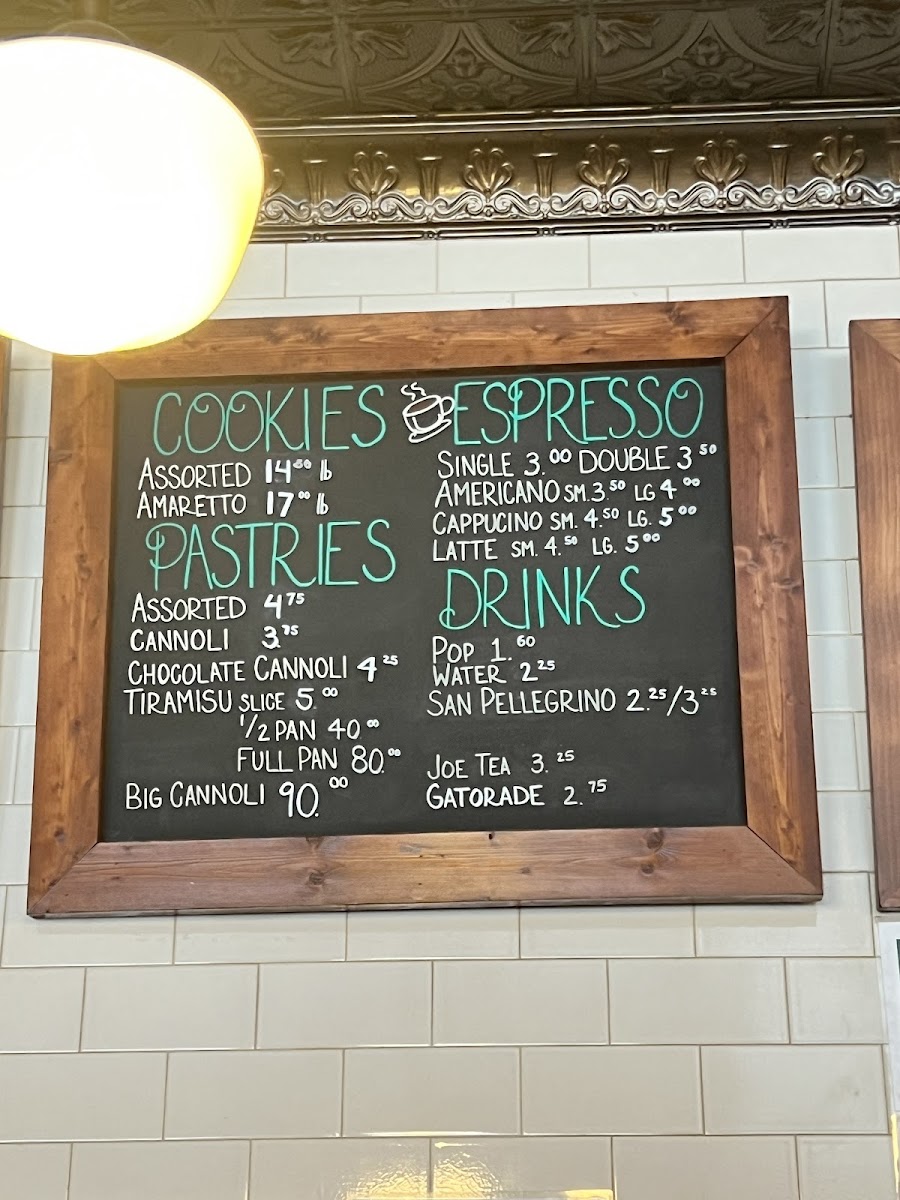 COOKIES
ASSORTED 14.50 lb
AMARETTO 17.00 lb
PASTRIES
ASSORTED 4.75
CANNOLI 3.75
CHOCOLATE CANNOLI 4.25
TIRAMISU SLICE 5.00
1/2 PAN 40.00
FULL PAN 80.00
BIG CANNOLI 90.00
ESPRESSO
SINGLE 3.00 DOUBLE 3.50
AMERICANO SM. 3.50 LG 4.00
CAPPUCINO SM. 4.50 LG. 5.00
LATTE SM. 4.50 LG. 5.00
DRINKS
POP 1.60
WATER 2.25
SAN PELLEGRINO 2.25/3.25
JOE TEA 3.25
GATORADE 2.75